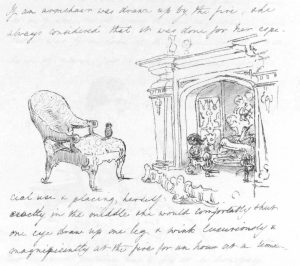 If an armchair was drawn up by the fire, she
always considered that it was done for her espe-
cial use & placing herself
exactly in the middle she would comfortably shut
one eye draw up one leg & wink luxuriously &
magnificently at the fire for an hour at a time.